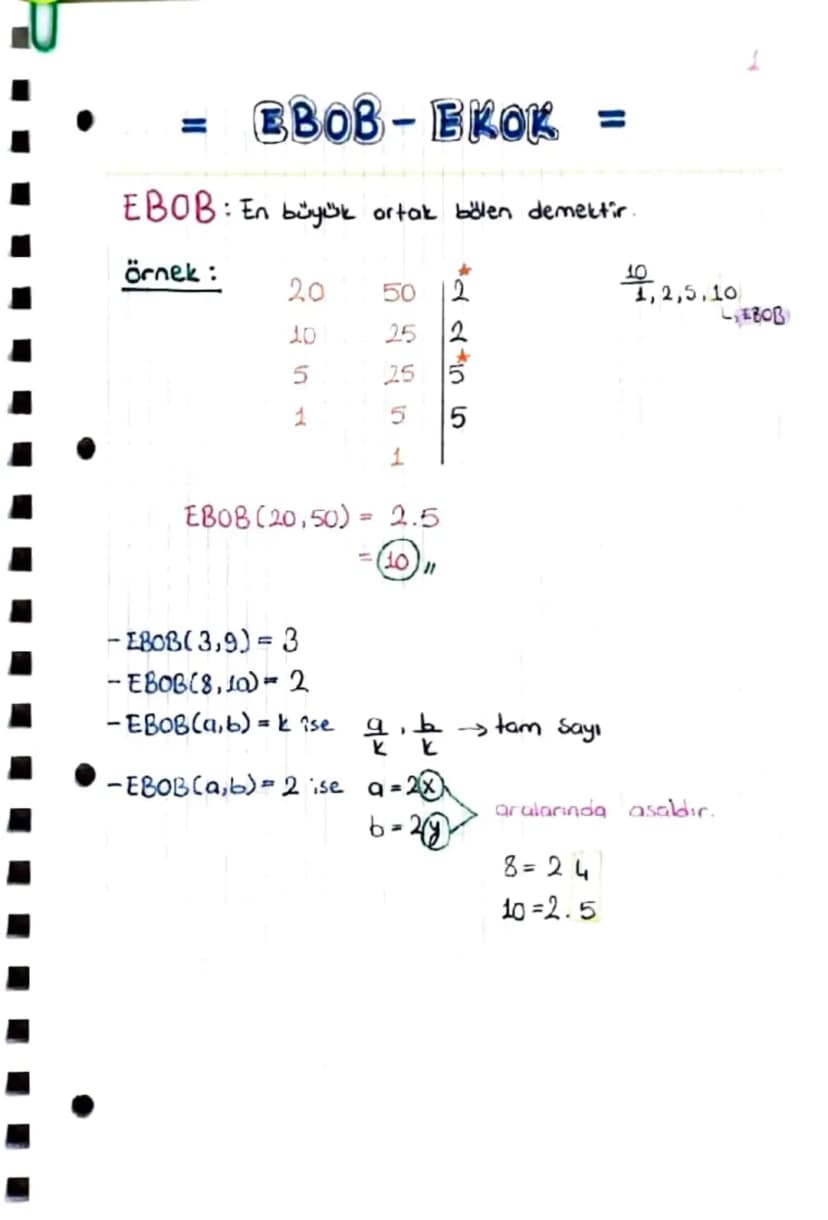 1
= EBOB - EKOK =
EBOB : En büyük ortak bölen demektir.
örnek :
20 50 | 2
10 25 | 2
5 25 | 5
1 5 | 5
1
10
1, 2, 5, 10
EBOB
EBOB(20,50) = 2.5
= 10 //
- EBOB(3,9) = 3
- EBOB(8,10) = 2
- EBOB(a,b) = k ise a/k , b/k → tam sayı
- EBOB(a,b) = 2 ise a = 2x
b = 2y
aralarında asaldır.
8 = 2 4
10 = 2.5